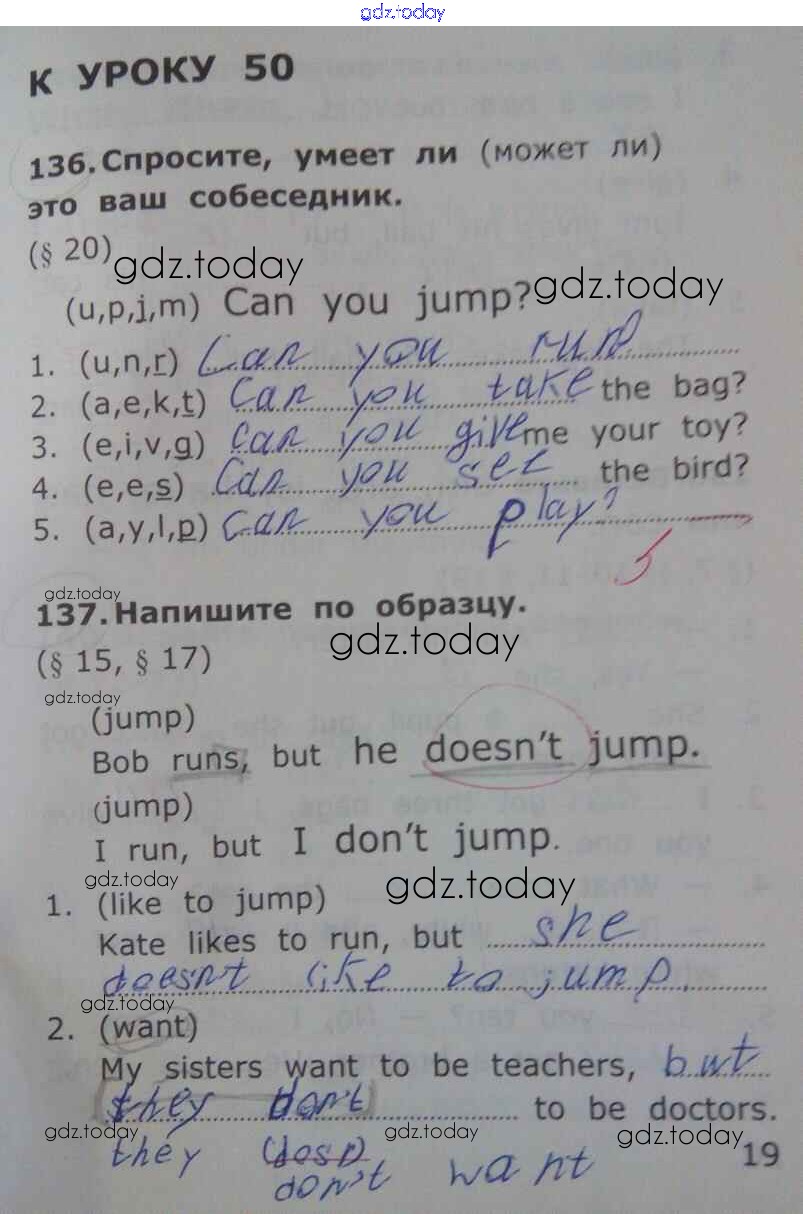 gdz.today
К УРОКУ 50
136. Спросите, умеет ли (может ли)
это ваш собеседник.
(§ 20)
gdz.today gdz.today
(u,p,j,m) Can you jump?
1. (u,n,r) Can you run
2. (a,e,k,t) Can you take the bag?
3. (e,i,v,g) Can you give me your toy?
4. (e,e,s) Can you see the bird?
5. (a,y,l,p) Can you play?
5
gdz.today
137. Напишите по образцу.
gdz.today
(§ 15, § 17)
gdz.today
(jump)
Bob runs, but he doesn't jump.
(jump)
I run, but I don't jump.
gdz.today gdz.today
1. (like to jump)
Kate likes to run, but she
doesn't like to jump.
gdz.today
2. (want)
My sisters want to be teachers, but
they don't to be doctors.
gdz.today gdz.today gdz.today
they don't want
19